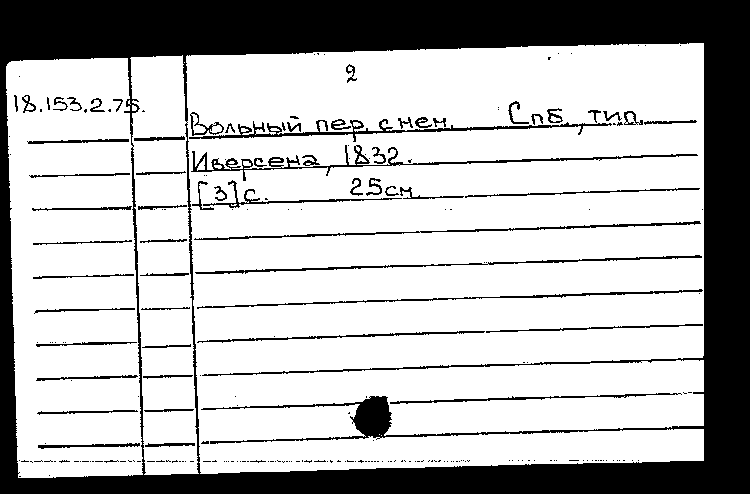 2
18.153.2.75.
Вольный пер. с нем. Спб., тип.
Иверсена, 1832.
[3]с. 25см.